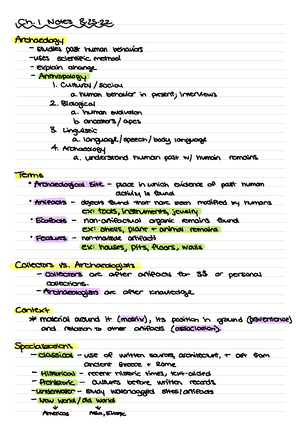 Ch. 1 Notes 8·25·22
Archaeology
- studies past human behaviors
- uses scientific method
- explain change
- Anthropology
1. Cultural / social
a. human behavior in present, interviews
2. Biological
a. human evolution
b. ancestors / apes
3. Linguistic
a. language/speech/body language
4. Archaeology
a. understand human past w/ human remains
Terms
* Archaeological Site - place in which evidence of past human
activity is found
* Artifacts - objects found that have been modified by humans
ex: tools, instruments, jewelry
* Ecofacts - non-artifactual organic remains found
ex: shells, plant + animal remains
* Features - non-movable artifacts
ex: houses, pits, floors, walls
Collectors vs. Archaeologists
- Collectors are after artifacts for $$ or personal
collections.
- Archaeologists are after knowledge
Context
* material around it (matrix), its position in ground (provenience)
and relation to other artifacts (association).
Specializations
- Classical - use of written sources, architecture, + art from
Ancient Greece + Rome
- Historical - recent historic times, text-aided
- Prehistoric - cultures before written records
- Underwater - study waterlogged sites/artifacts
- New world/old world
Americas Asia, Europe